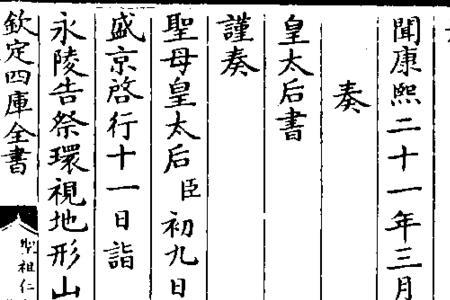 聞康熙二十一年三月
奏
皇太后書
謹奏
聖母皇太后臣初九日
盛京啓行十一日詣
永陵告祭環視地形山
欽定四庫全書
聖祖仁